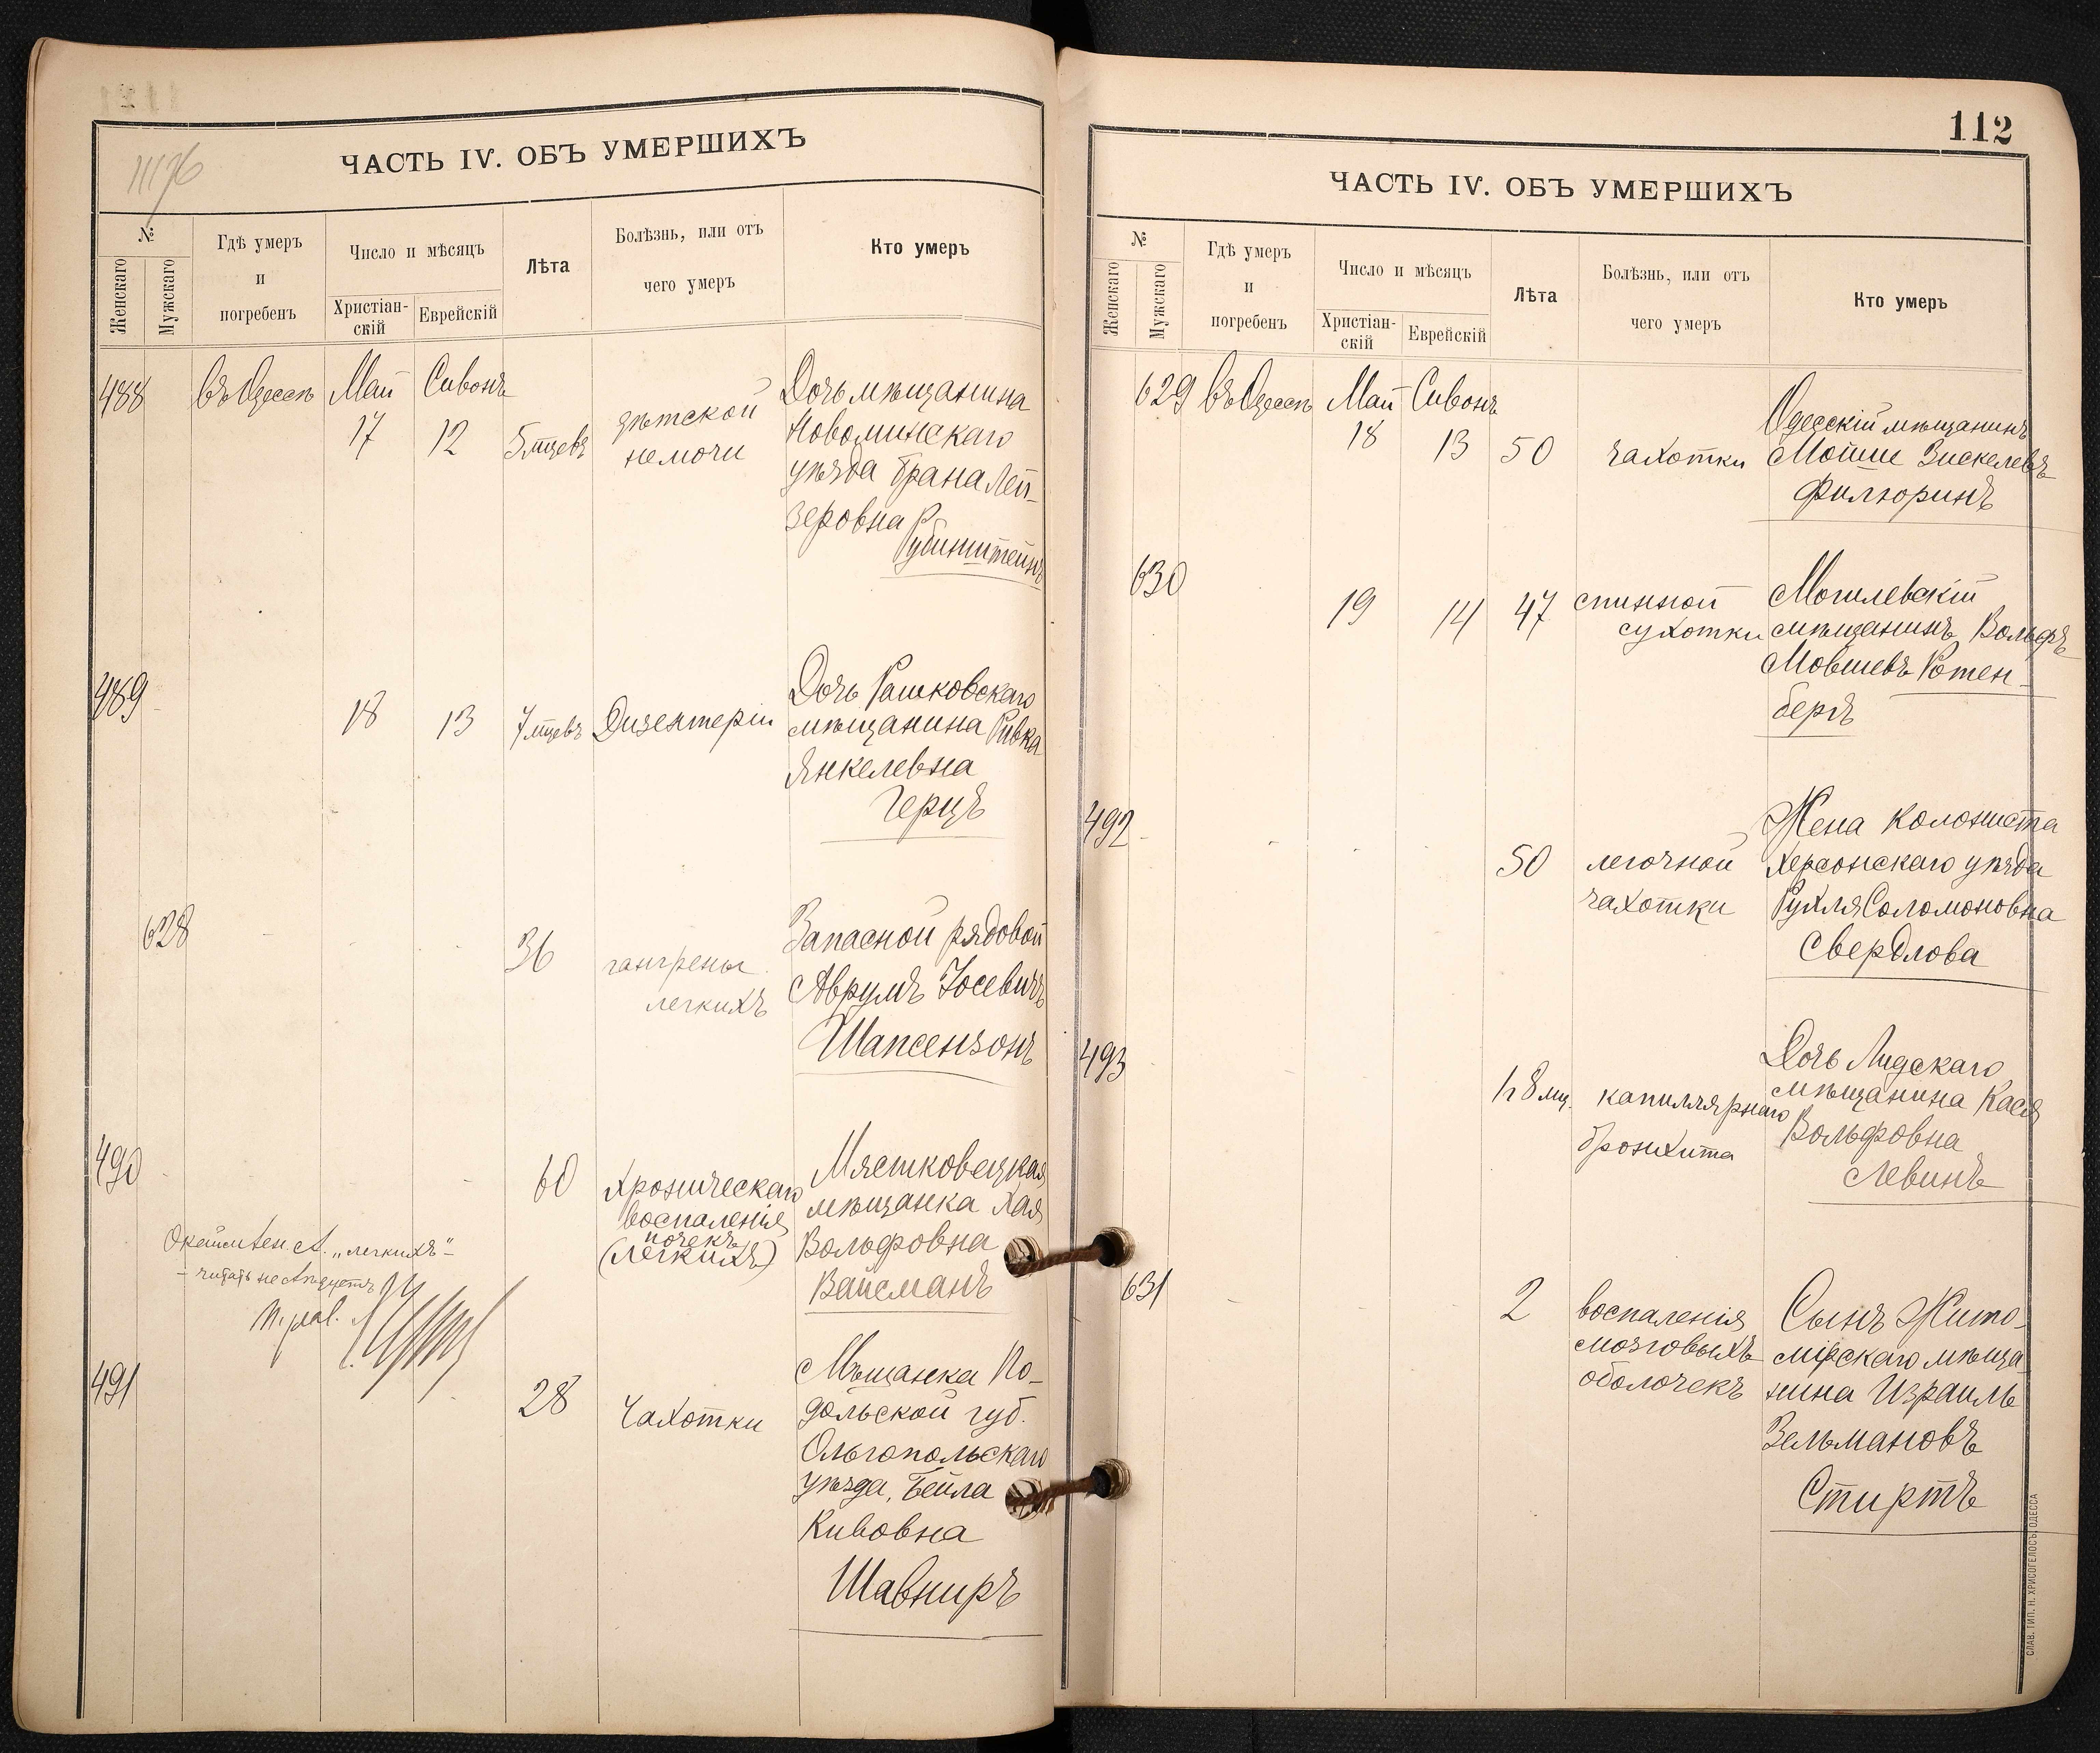 11176
ЧАСТЬ IV. ОБЪ УМЕРШИХЪ
№
Женскаго
Мужскаго
Гдѣ умеръ
и
погребенъ
Число и мѣсяцъ
Христіан-
скій
Еврейскій
Лѣта
Болѣзнь, или отъ
чего умеръ
Кто умеръ
488
въ Одессѣ
Май
17
Сивонъ
12
5 мцевъ
дѣтской
немочи
Дочь мѣщанина
Новоминскаго
уѣзда Брана Лей-
зеровна
Рубинштейнъ
489
18
13
7 мцевъ
Дизентеріи
Дочь Рашковскаго
мѣщанина Ривка
Янкелевна
Герцъ
628
36
гангрены
легкихъ
Запасной рядовой
Аврумъ Іосевичъ
Шапсензонъ
490
60
Хроническаго
воспаленія
почекъ
(легкихъ)
Мястковецкая
мѣщанка Хая
Вольфовна
Вайсманъ
"легкихъ"-
- читать не слѣдуетъ
491
28
Чахотки
Мѣщанка По-
дольской губ.
Ольгопольскаго
уѣзда, Бейла
Кивовна
Шавниръ
112
ЧАСТЬ IV. ОБЪ УМЕРШИХЪ
№
Женскаго
Мужскаго
Гдѣ умеръ
и
погребенъ
Число и мѣсяцъ
Христіан-
скій
Еврейскій
Лѣта
Болѣзнь, или отъ
чего умеръ
Кто умеръ
629
въ Одессѣ
Май
18
Сивонъ
13
50
чахотки
Одесскій мѣщанинъ
Мойше Зискелевъ
Филюринъ
630
19
14
47
спинной
сухотки
Могилевскій
мѣщанинъ Вольфъ
Мовшевъ Ротен-
бергъ
492
50
легочной
чахотки
Жена колониста
Херсонскаго уѣзда
Рухля Соломоновна
Свердлова
493
1 г 8 мц.
капиллярнаго
бронхита
Дочь Лидскаго
мѣщанина Кася
Вольфовна
Левинъ
631
2
воспаленія
мозговыхъ
оболочекъ
Сынъ Жито-
мірскаго мѣща
нина Израиль
Зельмановъ
Стиртъ
СЛАВ. ТИП. Н. ХРИСОГЕЛОСЪ, ОДЕССА